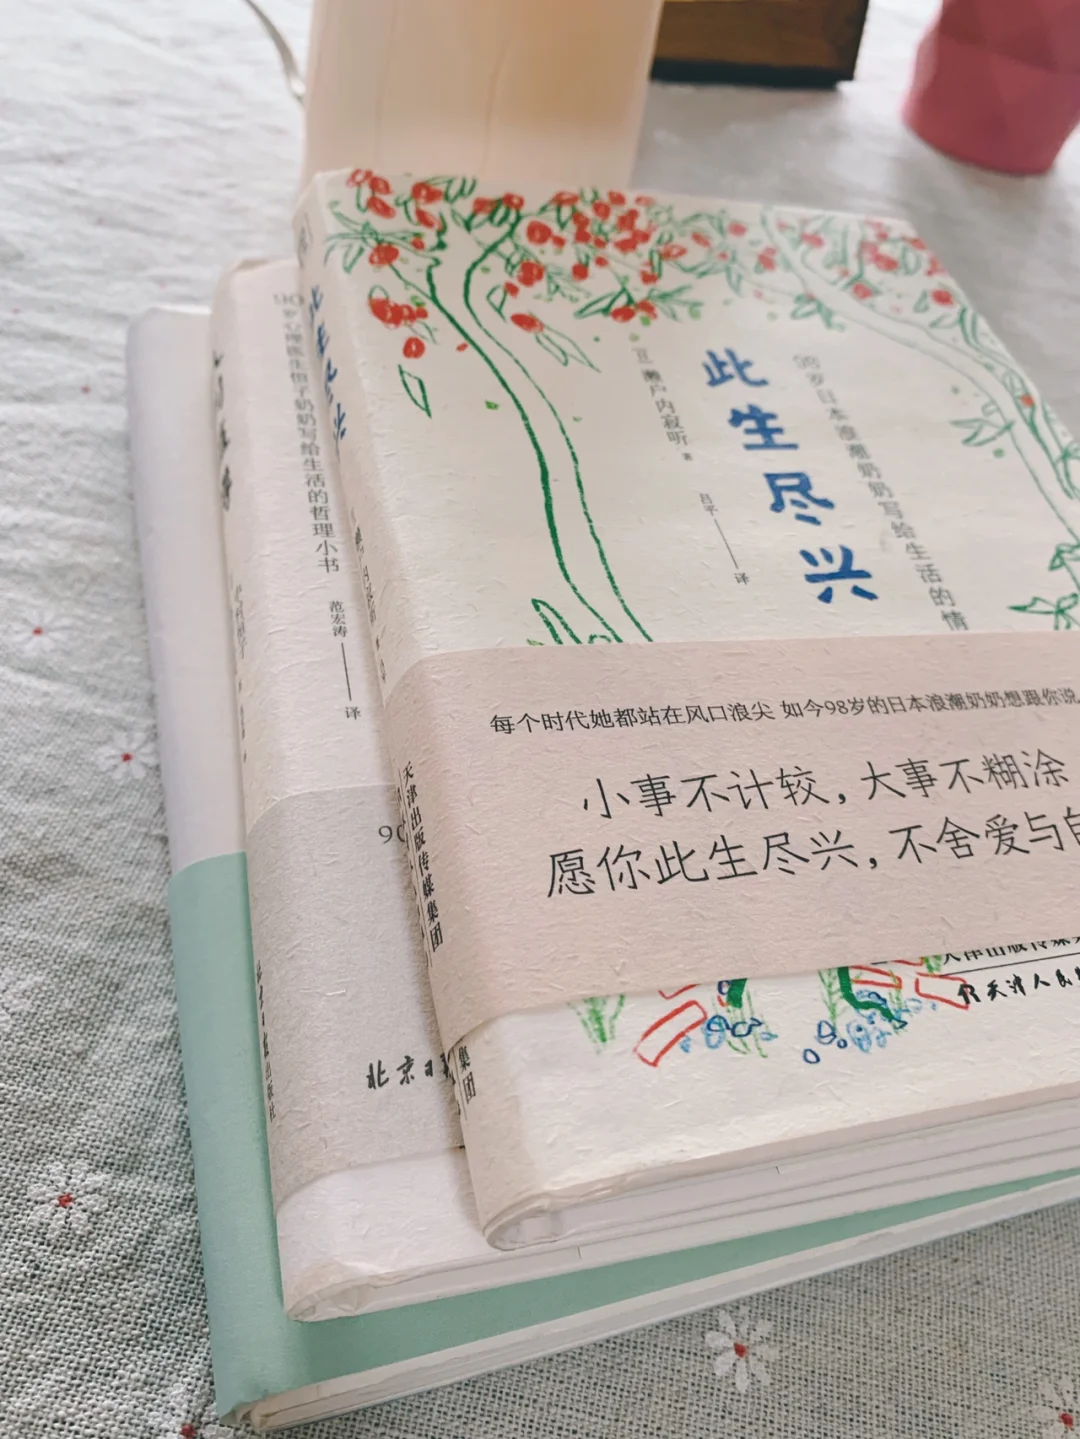 此生尽兴
98岁日本浪潮奶奶写给生活的情
[日]濑户内寂听 著
吕平 译
每个时代她都站在风口浪尖 如今98岁的日本浪潮奶奶想跟你说
小事不计较，大事不糊涂
愿你此生尽兴，不舍爱与自
天津出版传媒
天津人民
此生尽兴
天津出版传媒集团
集团
90岁心理医生恒子奶奶写给生活的哲理小书
范宏涛 译
90
北京日
出版社